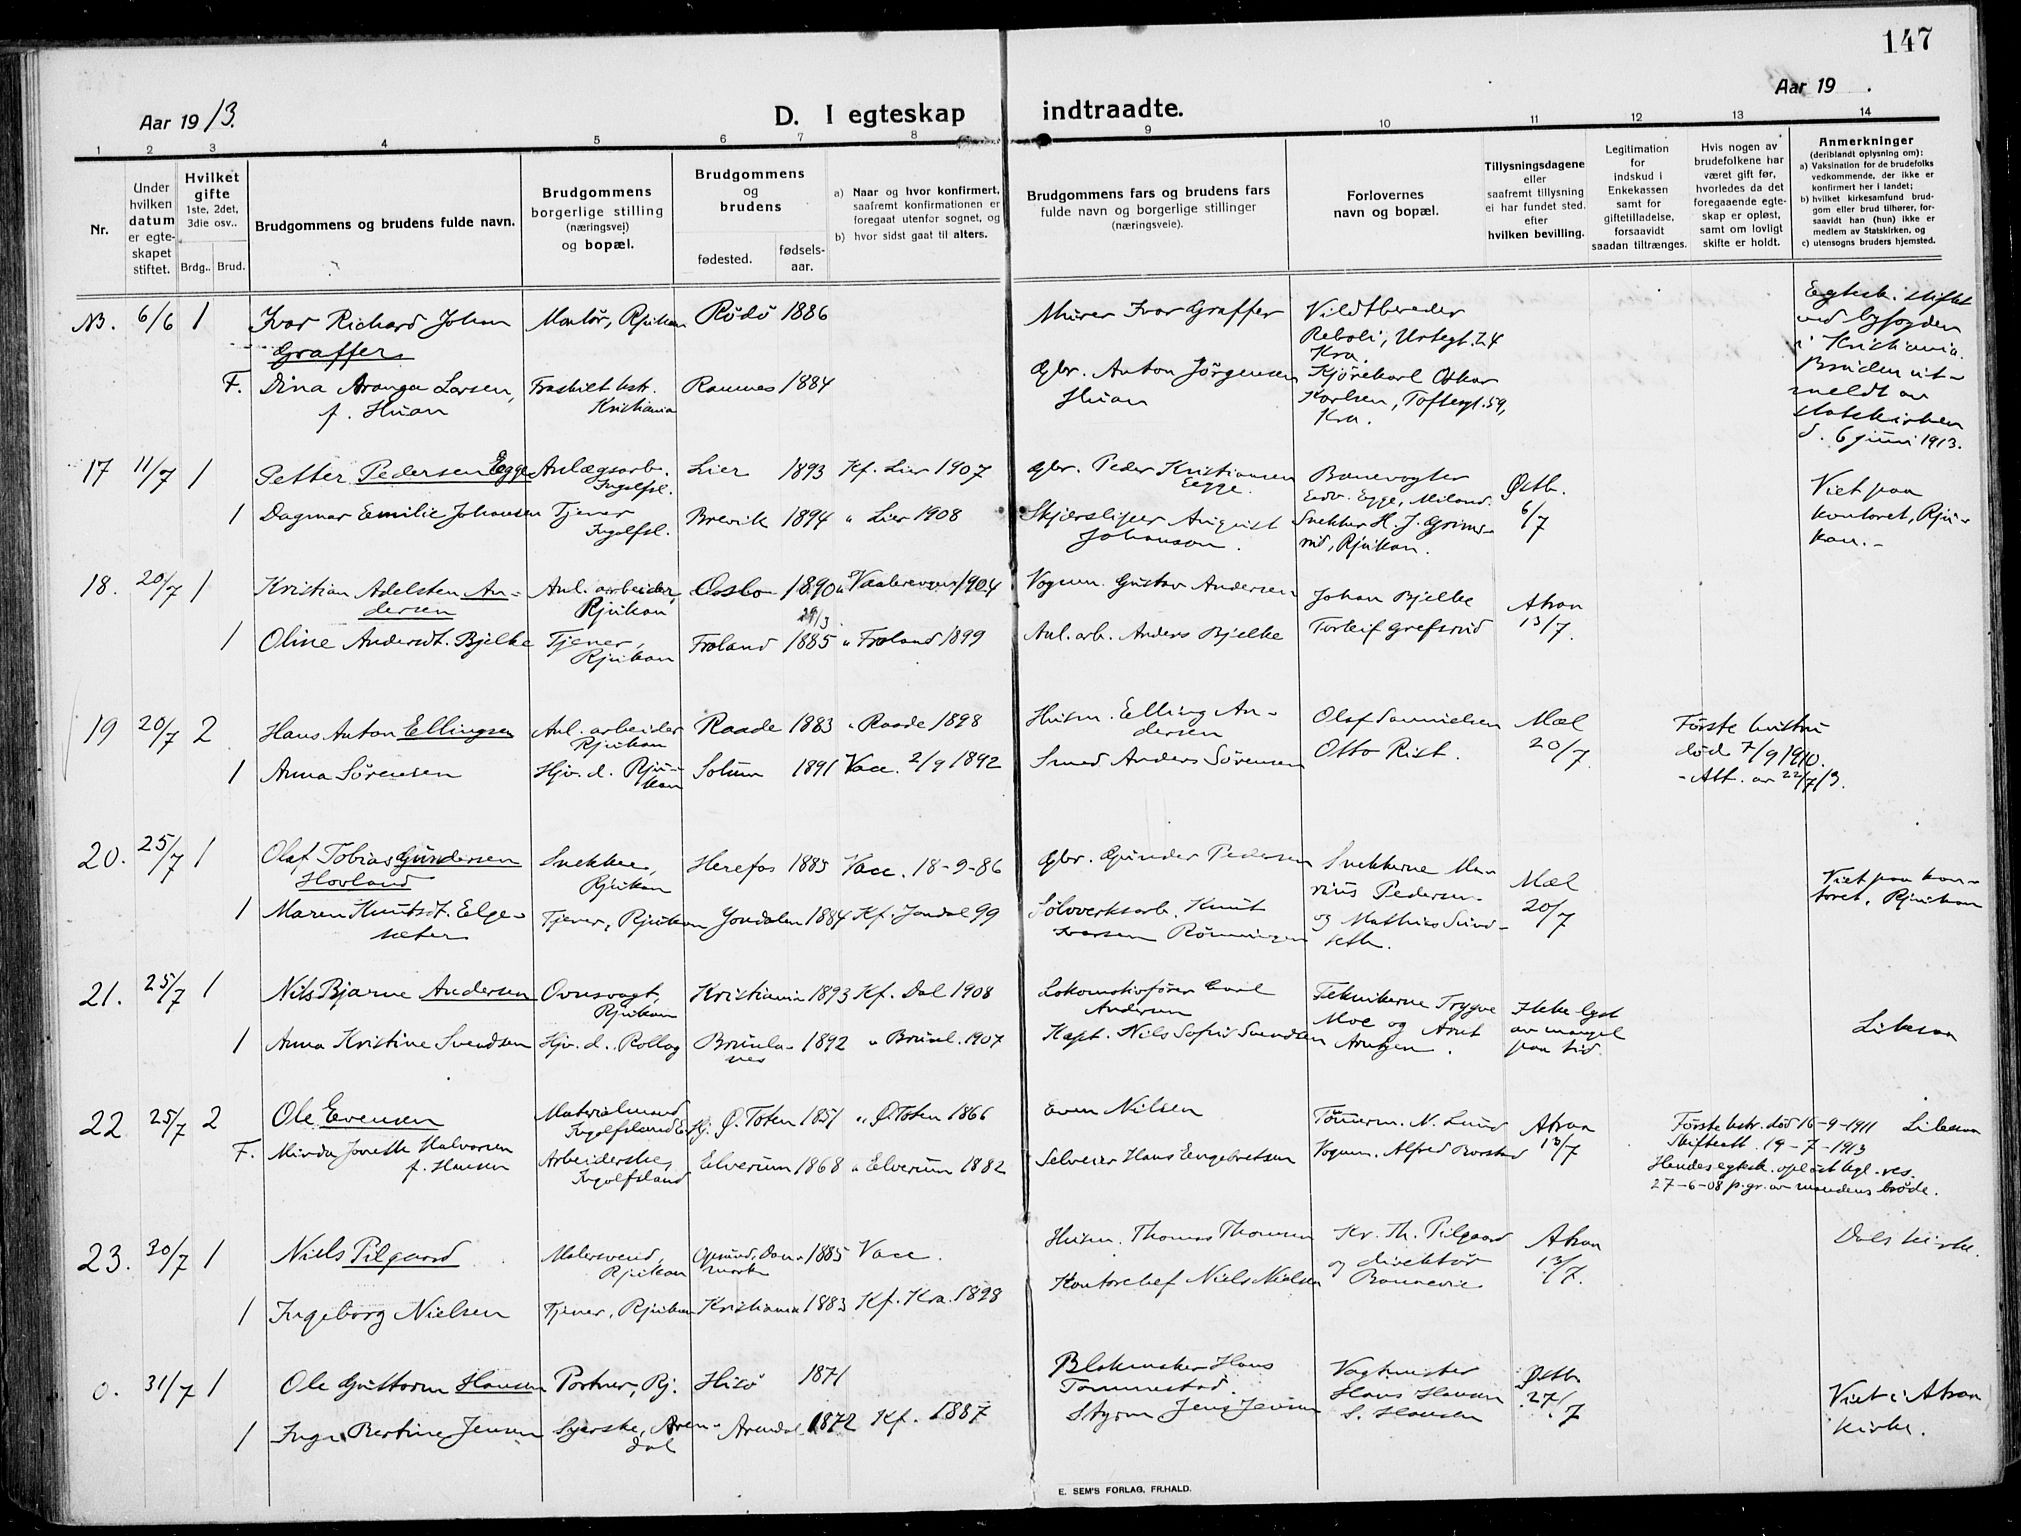 147
Aar 1913.
D. I egteskap indtraadte.
Aar 19 .
1 2 3 4 5 6 7 8 9 10 11 12 13 14
Nr.
Under hvilken datum er egteskapet stiftet.
Hvilket gifte 1ste, 2det, 3die osv..
Brdg.. Brud.
Brudgommens og brudens fulde navn.
Brudgommens borgerlige stilling (næringsvei) og bopæl.
Brudgommens og brudens
fødested. fødsels-aar.
a) Naar og hvor konfirmert, saafremt konfirmationen er foregaat utenfor sognet, og
b) hvor sidst gaat til alters.
Brudgommens fars og brudens fars fulde navn og borgerlige stillinger (næringsveie).
Forlovernes navn og bopæl.
Tillysningsdagene eller saafremt tillysning ei har fundet sted. efter hvilken bevilling.
Legitimation for indskud i Enkekassen samt for giftetilladelse, forsaavidt saadan tiltrænges.
Hvis nogen av brudefolkene har været gift før, hvorledes da det foregaaende egteskap er opløst, samt om lovligt skifte er holdt.
Anmerkninger (deriblandt oplysning om):
a) Vaksination for de brudefolks vedkommende, der ikke er konfirmert her i landet;
b) hvilket kirkesamfund brudgom eller brud tilhører, forsaavidt han (hun) ikke er medlem av Statskirken, og
c) utensogns bruders hjemsted.
NB. 6/6 1 Ivar Richard Johan Graffer Montør, Rjukan Rödö 1886 Murer Ivar Graffer Vildtbereder Reboli, Urtegt. 24 Kra. Egtesk. stiftet ved byfogden i Kristiania. Bruden utmeldt av statskirken d. 6 juni 1913.
F. Dina Aranga Larsen, f. Huan Fraskilt hstr. Kristiania Ramnes 1884 Gbr. Anton Jörgensen Huan Kjørekarl Oskar Karlsen, Toftegt. 59, Kra.
17 11/7 1 Petter Pedersen Egge Anlægsarb. Ingolfsl. Lier 1893 Kf. Lier 1907 Gbr. Peder Kristiansen Egge. Banevogter Edv. Egge, Miland. Østb. 6/7 Viet paa kontoret, Rjukan.-
1 Dagmar Emilie Johansen Tjener Ingolfsl. Brevik 1894 " Lier 1908 Skjærsliper August Johanson. Snekker H. J. Grimsrud, Rjukan.
18. 20/7 1 Kristian Adelsten Andersen Anl. arbeider, Rjukan Osslo 1890 29/3 " Vaalerengen 1904 Vognm. Gustav Andersen Johan Bjelke Atraa 13/7.
1 Oline Andersdt. Bjelke Tjener, Rjukan Froland 1885 " Froland 1899 Anl. arb. Anders Bjelke Torleif Grefsrud
19 20/7 2 Hans Anton Ellingsen Anl. arbeider Rjukan Raade 1883 " Raade 1898 Husm. Elling Andersen Olaf Samuelsen Mæl 20/7 Første hustru död 7/9 1910. - Att. av 22/7 13.
1 Anna Sørensen Hjv. d. Rjukan Solum 1891 Vacc. 2/9 1892 Smed Anders Sørensen Otto Rist.
20. 25/7 1 Olaf Tobias Gundersen Hovland Snekker, Rjukan Herefos 1885 Vacc. 18-9-86 Gbr. Gunder Pedersen Snekkerne Marius Pedersen og Mathias Sundseth. Mæl 20/7 Viet paa kontoret, Rjukan
1 Maren Knutsdt. Elgesæter Tjener, Rjukan Jondalen 1884 Kf. Jondal 99 Sølvverksarb. Knut Iversen Rønningen
21. 25/7 1 Nils Bjarne Andersen Ovnsvagt, Rjukan Kristiania 1893 Kf. Dal 1908 Lokomotivfører Emil Andersen Teknikerne Trygve Moe og Arnt Arntzen. Ikke lyst av mangel paa tid.
1 Anna Kristine Svendsen Hjv. d. Rollag Brunlanes 1892 " Brunl. 1907 Kapt. Nils Sofus Svendsen
22 25/7 2 Ole Evensen Materialmand Ingolfsland Ø. Toten 1851 " Ø. Toten 1866 Even Nilsen Tömrerm. N. Lund Atraa 13/7 Første hstr. død 16-9-1911 Skifteatt. 19-7-1913 Hendes egtesk. opløst kgl. res. 27-6-08 p. gr. av mandens brøde.
F. Minda Jonette Halvorsen f. Hansen Arbeiderske, Ingolfsland Elverum 1868 " Elverum 1882 Selveier Hans Engebretsen Vognm. Alfred Borstad
23. 30/7 1 Niels Pilgaard Malersvend, Rjukan Danmark 1885 Vacc. Husm. Thomas Thomsen Kr. Th. Pilgaard og direktør Bonnevie Atraa 13/7. Dals kirke.
1 Ingeborg Nielsen Tjener, Rjukan Kristiania 1883 Kf. Kra. 1898 Kontorchef Niels Nielsen
0. 31/7 1 Ole Guttorm Hansen Portner, Rj. Hisö 1871 Blokmaker Hans Tommestad. Vagtmester Hans Hansen Østb 27/7 Viet i Atraa kirke.
1 Inga Bertine Jensen Syerske, Arendal Arendal 1872 Kf. 1887 Styrm Jens Jensen S. Hansen
E. SEM'S FORLAG, FR.HALD.